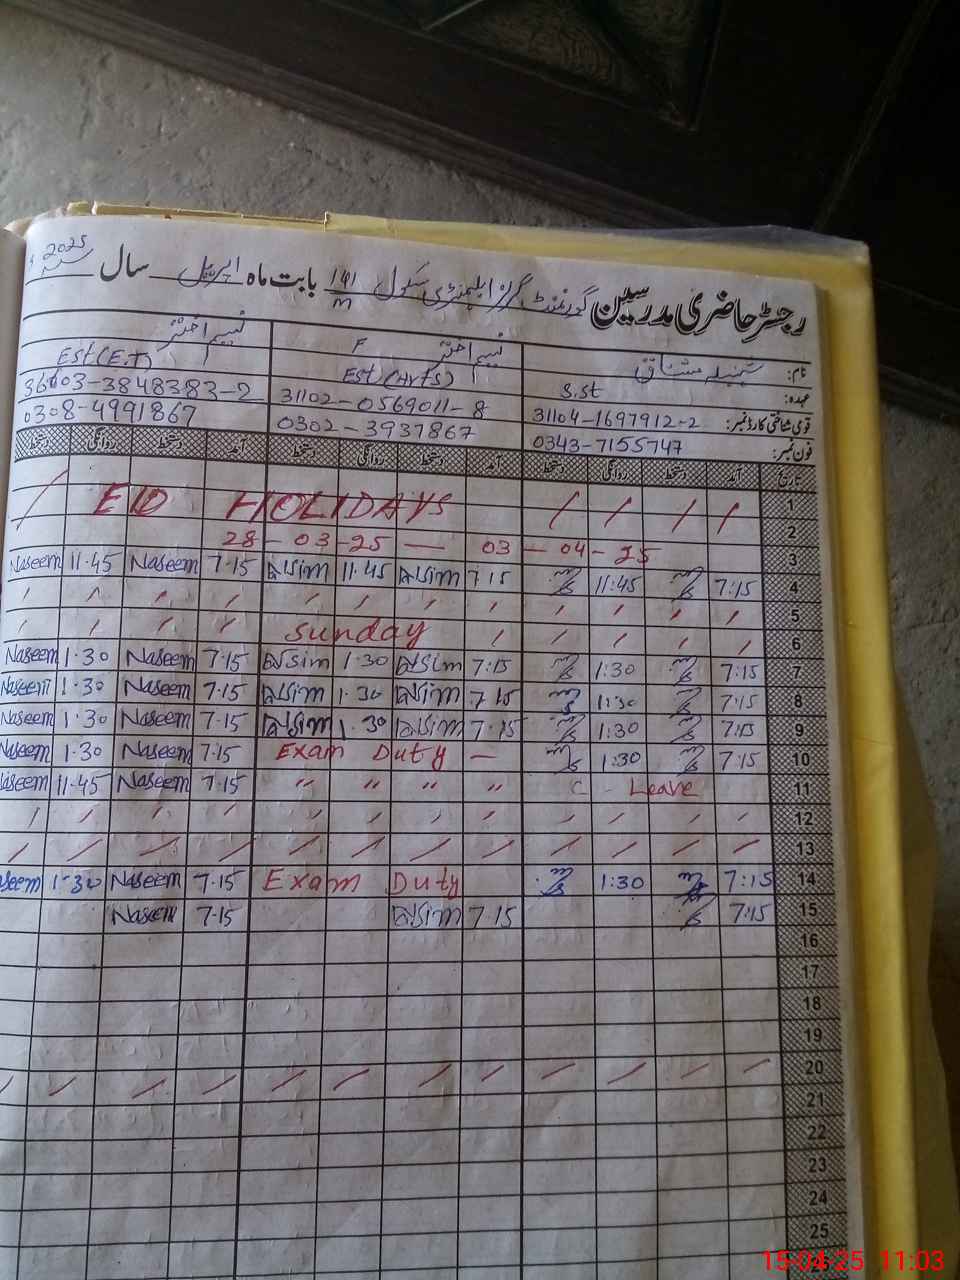 رجسٹر حاضری مدرسین گورنمنٹ گرلز ایلیمنٹری سکول 141/M بابت ماہ اپریل سال 2025
نام: مشتاق نسیم اختر F نسیم اختر
عہدہ: S.st Est(Arts) Est(E.T)
قومی شناختی کارڈ نمبر: 31104-1697912-2 31102-0569011-8 36603-3848383-2
فون نمبر: 0343-7155747 0302-3937867 0308-4991867
تاریخ آمد دستخط روانگی دستخط آمد دستخط روانگی دستخط آمد دستخط روانگی دستخط
1 / / / / EID HOLIDAYS /
2
3 28-03-25 — 03-04-25
4 7:15 11:45 7:15 Nasim 11.45 Nasim 7.15 Naseem 11.45 Naseem
5
6 Sunday
7 7:15 1:30 7:15 Nasim 1.30 Nasim 7.15 Naseem 1.30 Naseem
8 7:15 1:30 7.15 Nasim 1.30 Nasim 7.15 Naseem 1.30 Naseem
9 7:15 1:30 7.15 Nasim 1.30 Nasim 7.15 Naseem 1.30 Naseem
10 7:15 1:30 Exam Duty — 7.15 Naseem 1.30 Naseem
11 C - Leave " " " " 7.15 Naseem 11.45 Naseem
12
13
14 7:15 1:30 Exam Duty 7.15 Naseem 1.30 Naseem
15 7:15 7.15 Nasim 7.15 Naseem
16
17
18
19
20
21
22
23
24
25
15-04-25 11:03